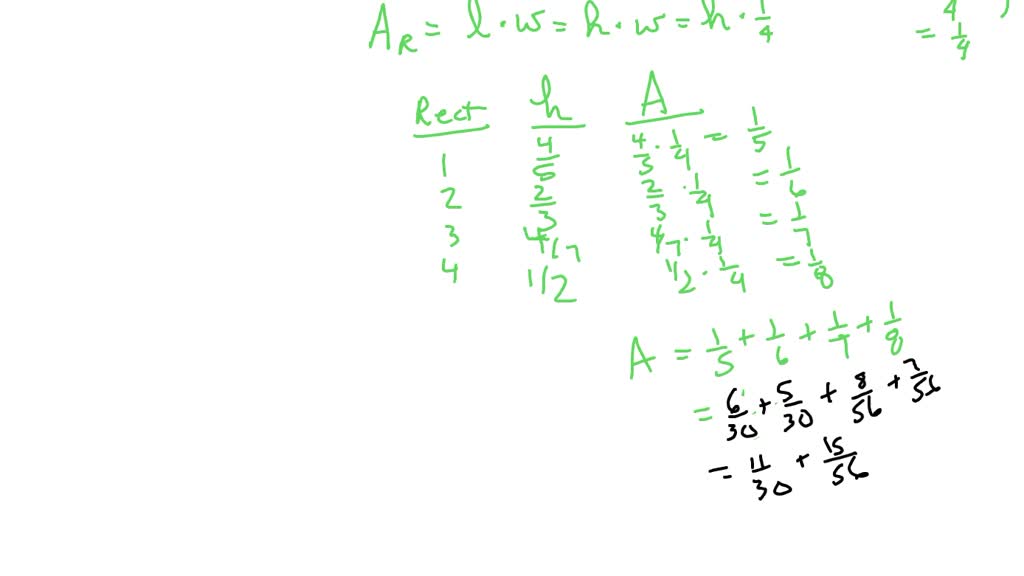 A_R = l · w = h · w = h · 1/4
4
= 1/4
Rect h A
1 4/5 4/5 · 1/4 = 1/5
2 2/3 2/3 · 1/4 = 1/6
3 4/7 4/7 · 1/4 = 1/7
4 1/2 1/2 · 1/4 = 1/8
A = 1/5 + 1/6 + 1/7 + 1/8
= 6/30 + 5/30 + 8/56 + 7/56
= 11/30 + 15/56